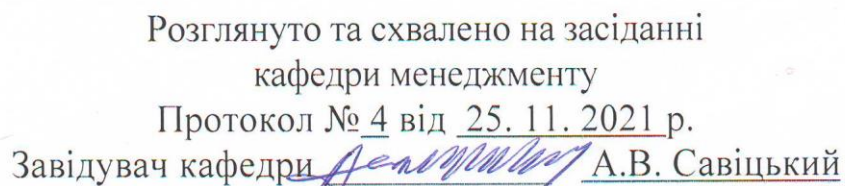 Розглянуто та схвалено на засіданні
кафедри менеджменту
Протокол № 4 від 25. 11. 2021 р.
Завідувач кафедри А.В. Савіцький